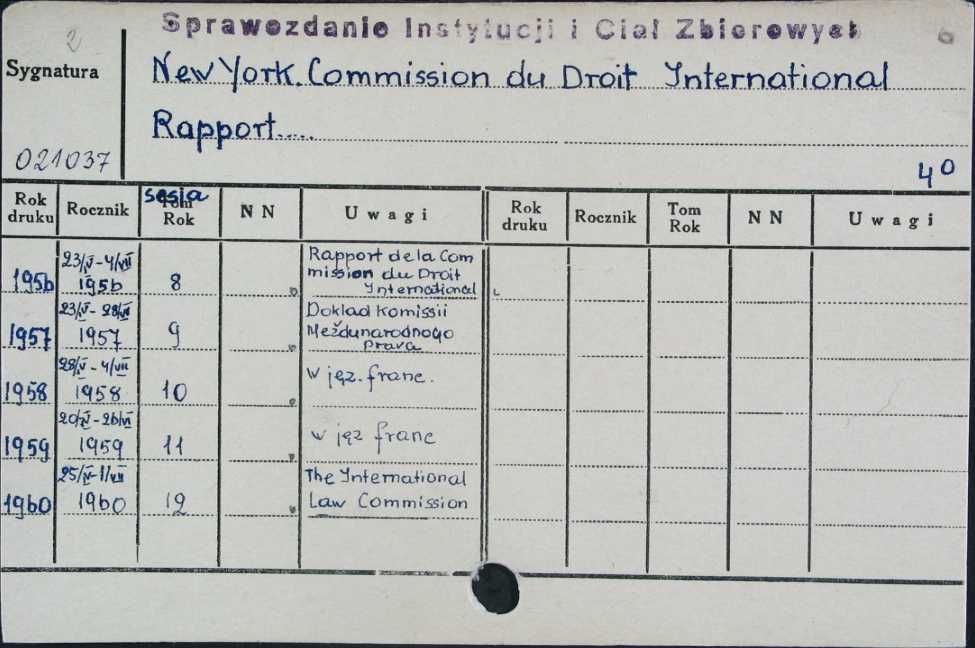 2
Sprawozdanie Instytucji i Ciał Zbiorowych
6
Sygnatura
New York. Commission du Droit International
Rapport....
021037
4°
Rok druku Rocznik sesja Tom Rok NN Uwagi Rok druku Rocznik Tom Rok NN Uwagi
23/V-4/VII Rapport de la Com
mission du Droit
1956 1956 8 International
23/IV-28/VI Doklad Komissii
1957 1957 9 Meždunarodnogo
prava
28/IV-4/VII
1958 1958 10 w jęz. franc.
20/IV-26/VI
1959 1959 11 w jęz franc
25/IV-1/VII The International
1960 1960 12 Law Commission